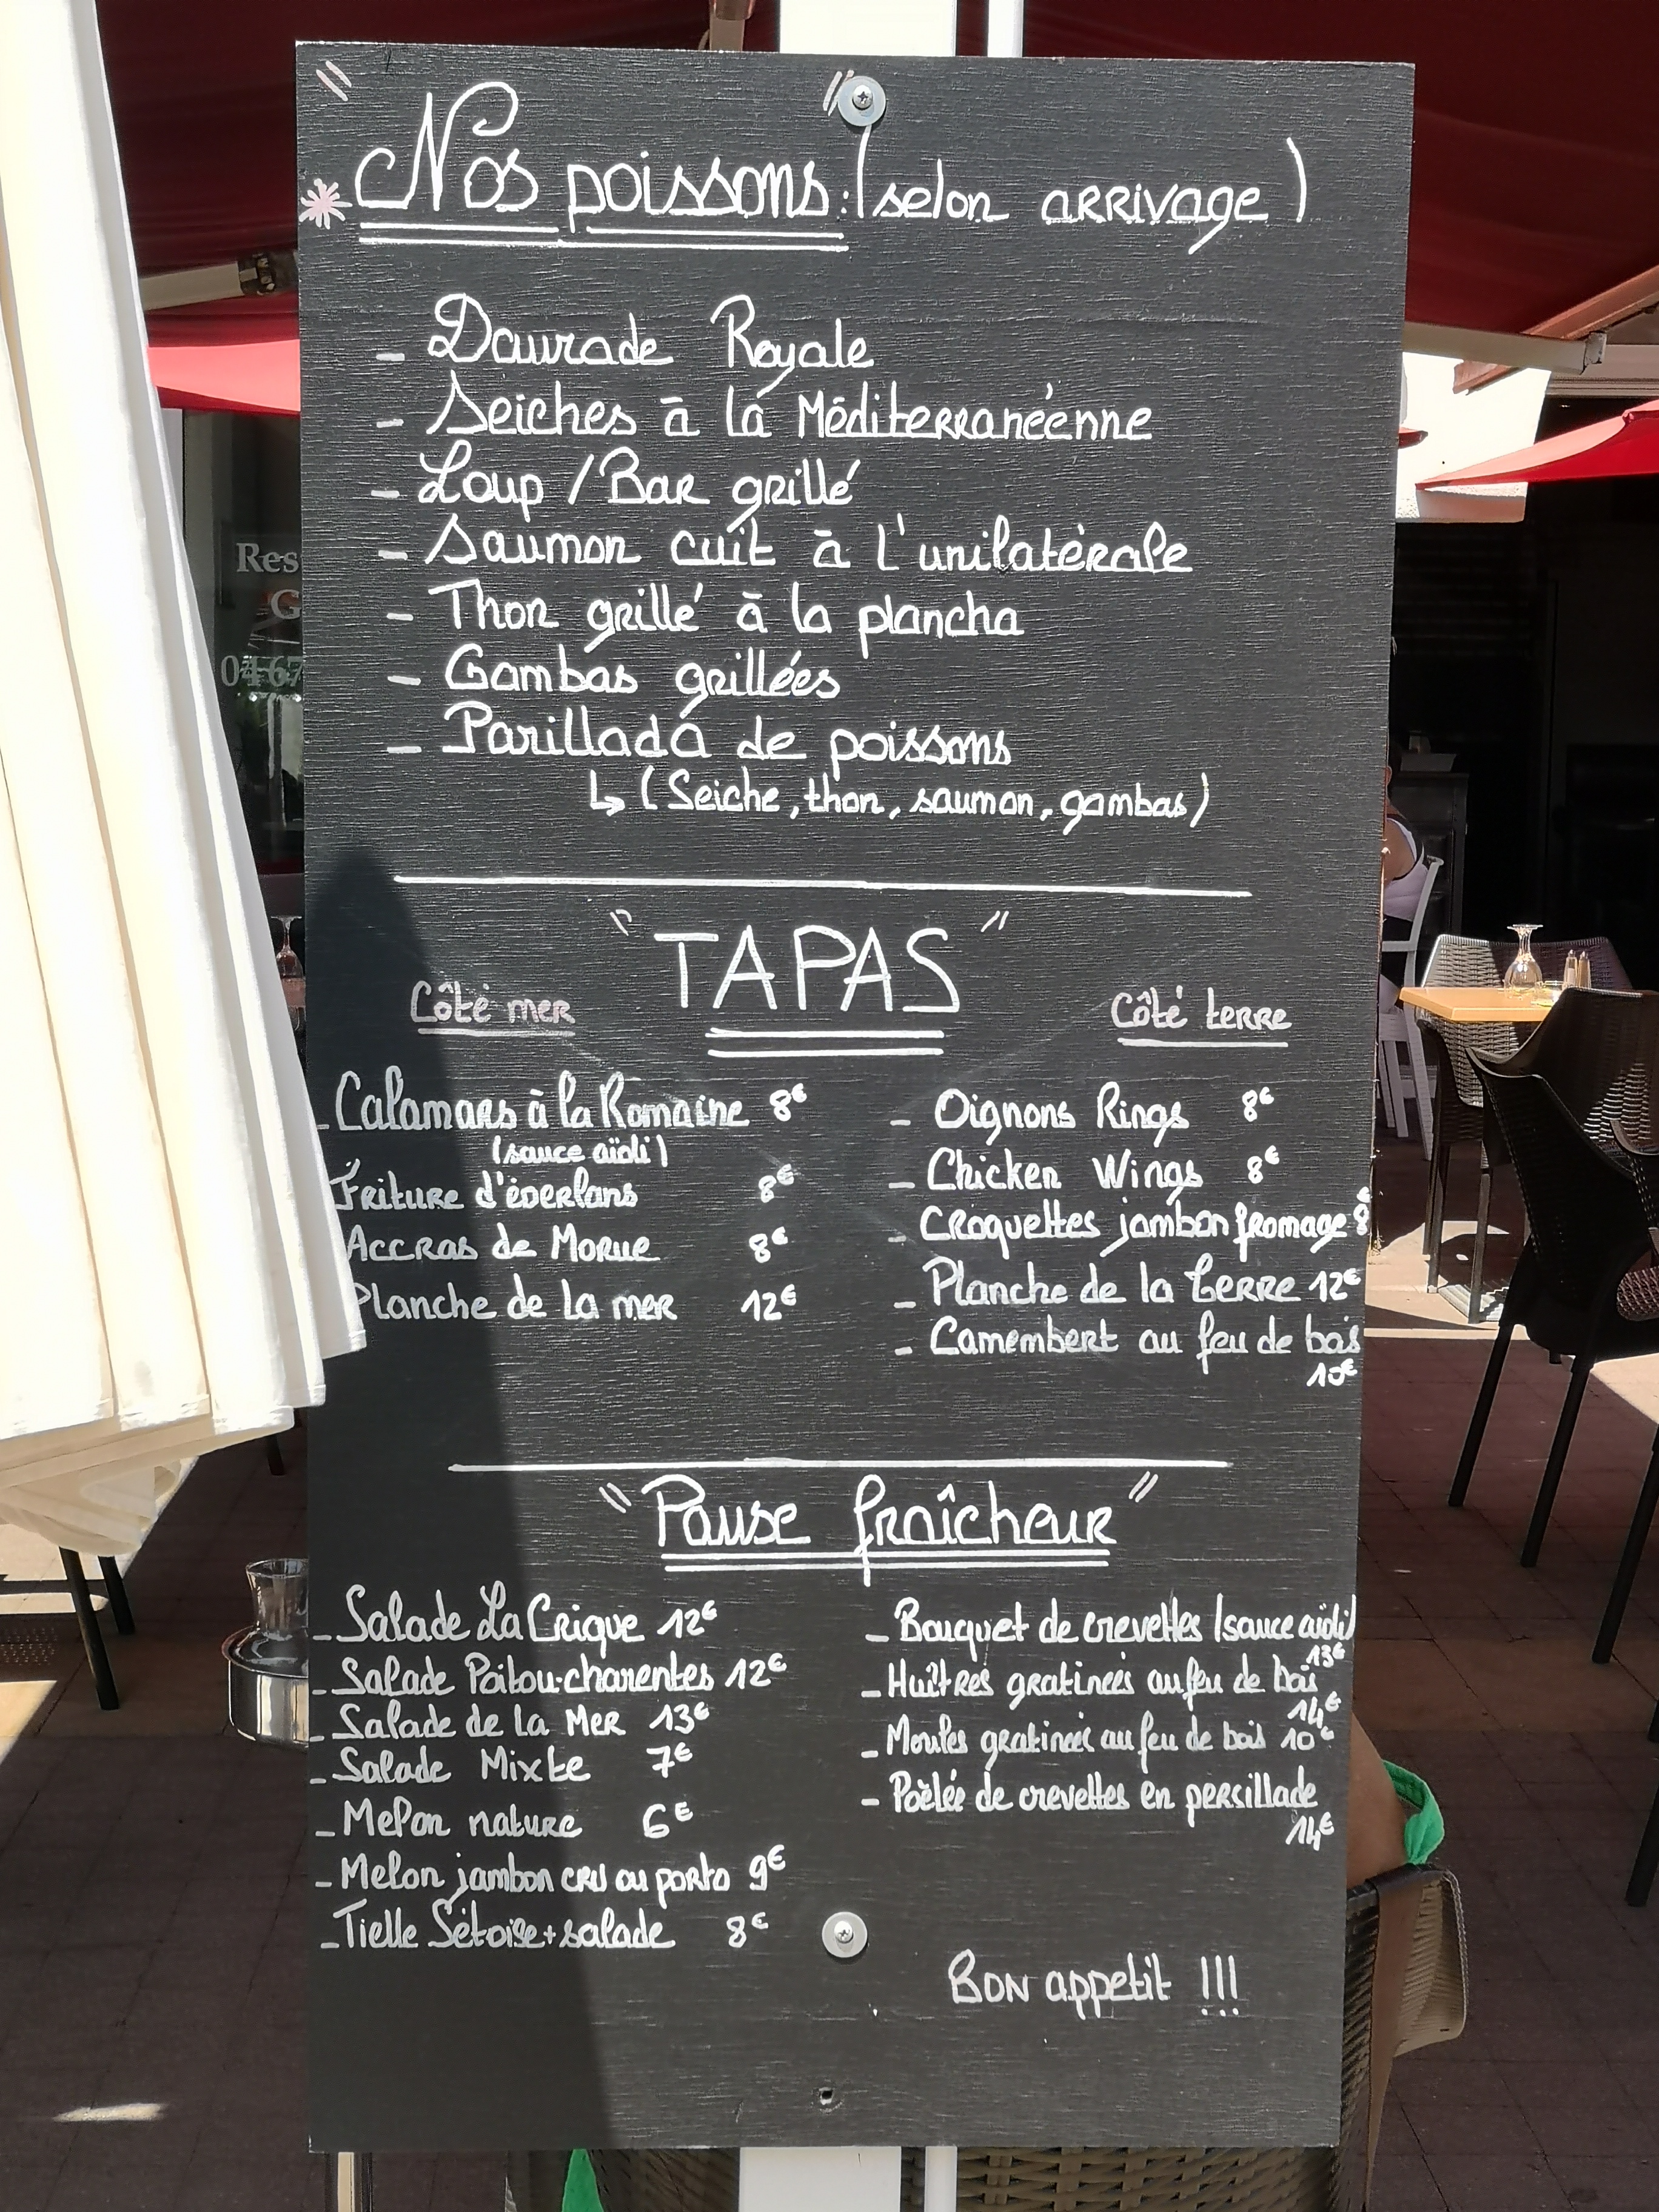 Nos poissons : (selon arrivage)
- Daurade Royale
- Seiches à la Méditerranéenne
- Loup / Bar grillé
- Saumon cuit à l'unilatérale
- Thon grillé à la plancha
- Gambas grillées
- Parillada de poissons
↳ (Seiche, thon, saumon, gambas)
"TAPAS"
Côté mer
- Calamars à la Romaine 8€
(sauce aïoli)
Friture d'éperlans 8€
Accras de Morue 8€
Planche de la mer 12€
Côté terre
- Oignons Rings 8€
- Chicken Wings 8€
- Croquettes jambon fromage 8€
- Planche de la terre 12€
- Camembert au feu de bois
10€
"Pause fraîcheur"
- Salade La Crique 12€
- Salade Poitou-charentes 12€
- Salade de la Mer 13€
- Salade Mixte 7€
- Melon nature 6€
- Melon jambon cru ou porto 9€
- Tielle Sétoise + salade 8€
- Bouquet de crevettes (sauce aïoli)
13€
- Huîtres gratinées au feu de bois
14€
- Moules gratinées au feu de bois 10€
- Poêlée de crevettes en persillade
14€
Bon appetit !!!
Res
G
04 67